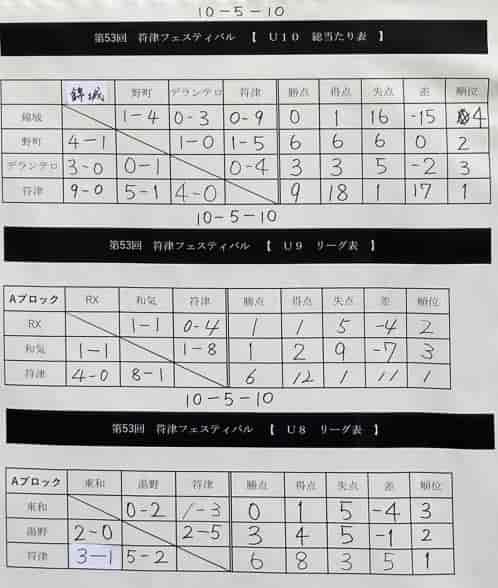 10-5-10
第53回 符津フェスティバル 【 U10 総当たり表 】
錦城 野町 デランテロ 符津 勝点 得点 失点 差 順位
錦城 1-4 0-3 0-9 0 1 16 -15 4
野町 4-1 1-0 1-5 6 6 6 0 2
デランテロ 3-0 0-1 0-4 3 3 5 -2 3
符津 9-0 5-1 4-0 9 18 1 17 1
10-5-10
第53回 符津フェスティバル 【 U9 リーグ表 】
Aブロック RX 和気 符津 勝点 得点 失点 差 順位
RX 1-1 0-4 1 1 5 -4 2
和気 1-1 1-8 1 2 9 -7 3
符津 4-0 8-1 6 12 1 11 1
10-5-10
第53回 符津フェスティバル 【 U8 リーグ表 】
Aブロック 東和 湯野 符津 勝点 得点 失点 差 順位
東和 0-2 1-3 0 1 5 -4 3
湯野 2-0 2-5 3 4 5 -1 2
符津 3-1 5-2 6 8 3 5 1